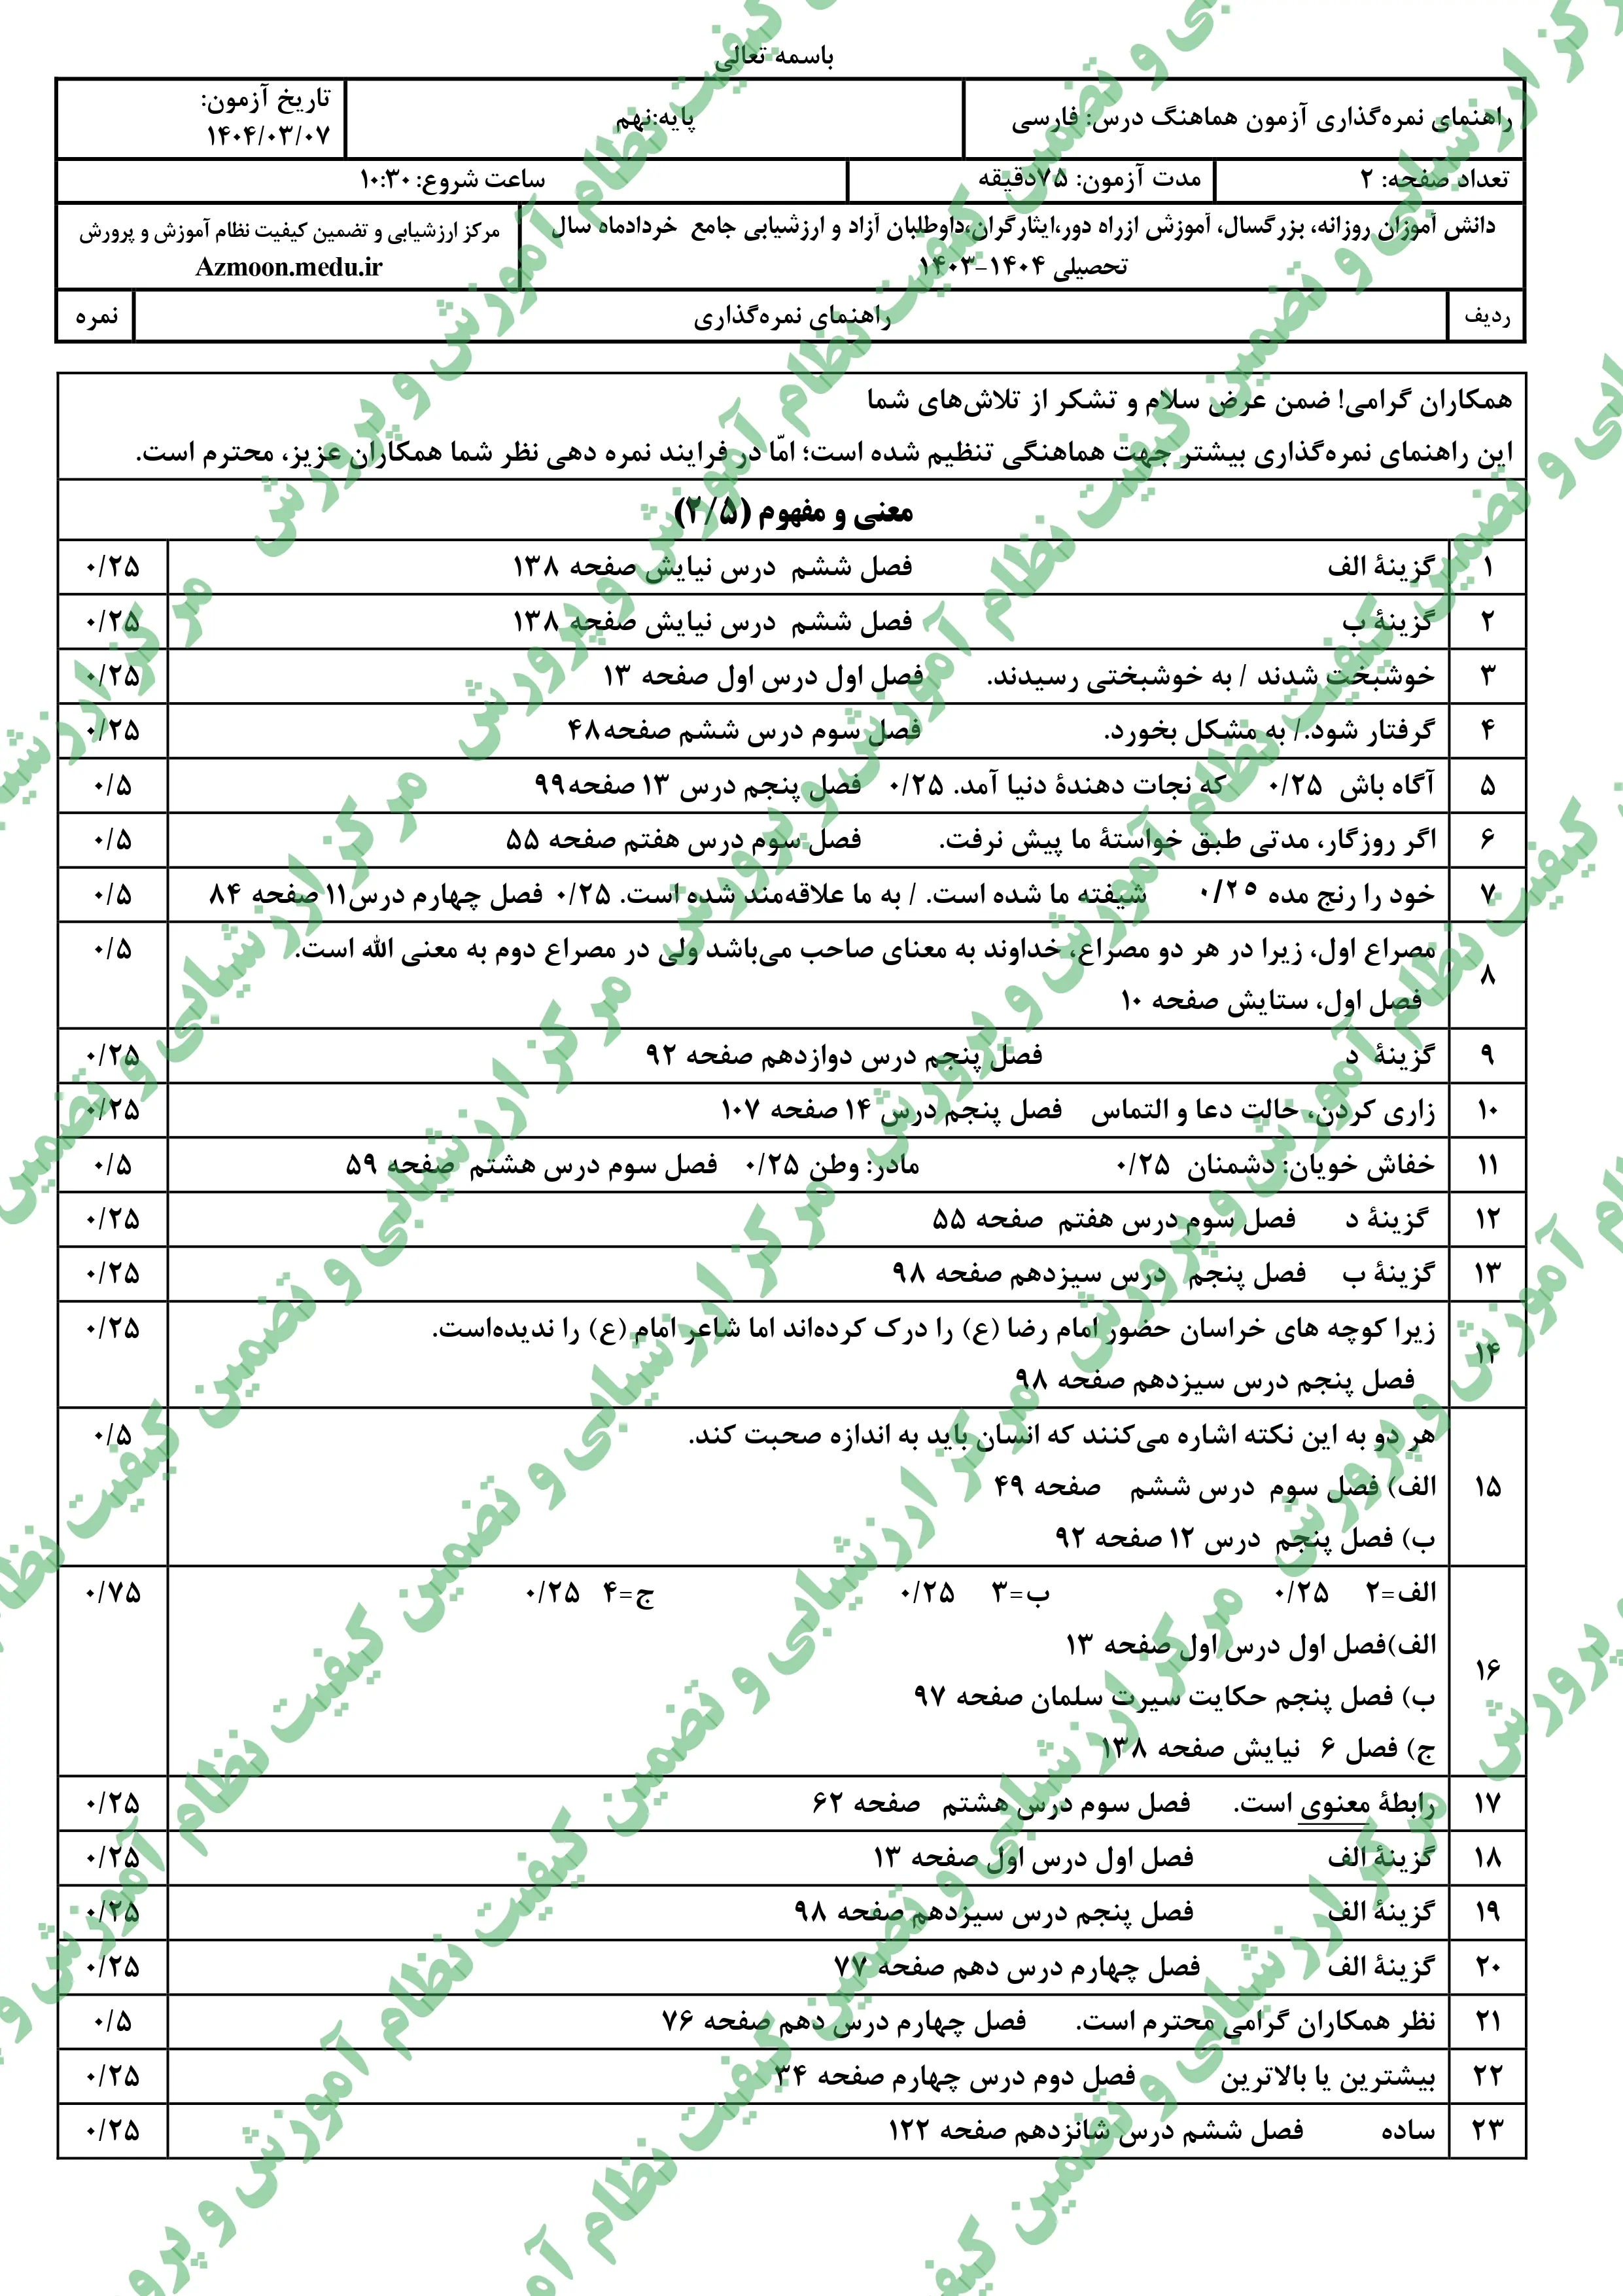 باسمه تعالی
راهنمای نمره‌گذاری آزمون هماهنگ درس: فارسی
پایه:نهم
تاریخ آزمون:
۱۴۰۴/۰۳/۰۷
تعداد صفحه: ۲
مدت آزمون: ۷۵دقیقه
ساعت شروع: ۱۰:۳۰
دانش آموزان روزانه، بزرگسال، آموزش ازراه دور،ایثارگران،داوطلبان آزاد و ارزشیابی جامع خردادماه سال
تحصیلی ۱۴۰۴-۱۴۰۳
مرکز ارزشیابی و تضمین کیفیت نظام آموزش و پرورش
Azmoon.medu.ir
ردیف راهنمای نمره‌گذاری نمره
همکاران گرامی! ضمن عرض سلام و تشکر از تلاش‌های شما
این راهنمای نمره‌گذاری بیشتر جهت هماهنگی تنظیم شده است؛ امّا در فرایند نمره دهی نظر شما همکاران عزیز، محترم است.
معنی و مفهوم (۲/۵)
۱ گزینهٔ الف فصل ششم درس نیایش صفحه ۱۳۸ ۰/۲۵
۲ گزینهٔ ب فصل ششم درس نیایش صفحه ۱۳۸ ۰/۲۵
۳ خوشبخت شدند / به خوشبختی رسیدند. فصل اول درس اول صفحه ۱۳ ۰/۲۵
۴ گرفتار شود./ به مشکل بخورد. فصل سوم درس ششم صفحه۴۸ ۰/۲۵
۵ آگاه باش ۰/۲۵ که نجات دهندهٔ دنیا آمد. ۰/۲۵ فصل پنجم درس ۱۳ صفحه۹۹ ۰/۵
۶ اگر روزگار، مدتی طبق خواستهٔ ما پیش نرفت. فصل سوم درس هفتم صفحه ۵۵ ۰/۵
۷ خود را رنج مده ۰/۲۵ شیفته ما شده است. / به ما علاقه‌مند شده است. ۰/۲۵ فصل چهارم درس۱۱ صفحه ۸۴ ۰/۵
۸ مصراع اول، زیرا در هر دو مصراع، خداوند به معنای صاحب می‌باشد ولی در مصراع دوم به معنی الله است. ۰/۵
فصل اول، ستایش صفحه ۱۰
۹ گزینهٔ د فصل پنجم درس دوازدهم صفحه ۹۲ ۰/۲۵
۱۰ زاری کردن، حالت دعا و التماس فصل پنجم درس ۱۴ صفحه ۱۰۷ ۰/۲۵
۱۱ خفاش خویان: دشمنان ۰/۲۵ مادر: وطن ۰/۲۵ فصل سوم درس هشتم صفحه ۵۹ ۰/۵
۱۲ گزینهٔ د فصل سوم درس هفتم صفحه ۵۵ ۰/۲۵
۱۳ گزینهٔ ب فصل پنجم درس سیزدهم صفحه ۹۸ ۰/۲۵
۱۴ زیرا کوچه های خراسان حضور امام رضا (ع) را درک کرده‌اند اما شاعر امام (ع) را ندیده‌است. ۰/۲۵
فصل پنجم درس سیزدهم صفحه ۹۸
۱۵ هر دو به این نکته اشاره می‌کنند که انسان باید به اندازه صحبت کند. ۰/۵
الف) فصل سوم درس ششم صفحه ۴۹
ب) فصل پنجم درس ۱۲ صفحه ۹۲
۱۶ الف=۲ ۰/۲۵ ب=۳ ۰/۲۵ ج=۴ ۰/۲۵ ۰/۷۵
الف)فصل اول درس اول صفحه ۱۳
ب) فصل پنجم حکایت سیرت سلمان صفحه ۹۷
ج) فصل ۶ نیایش صفحه ۱۳۸
۱۷ رابطهٔ معنوی است. فصل سوم درس هشتم صفحه ۶۲ ۰/۲۵
۱۸ گزینهٔ الف فصل اول درس اول صفحه ۱۳ ۰/۲۵
۱۹ گزینهٔ الف فصل پنجم درس سیزدهم صفحه ۹۸ ۰/۲۵
۲۰ گزینهٔ الف فصل چهارم درس دهم صفحه ۷۷ ۰/۲۵
۲۱ نظر همکاران گرامی محترم است. فصل چهارم درس دهم صفحه ۷۶ ۰/۵
۲۲ بیشترین یا بالاترین فصل دوم درس چهارم صفحه ۳۴ ۰/۲۵
۲۳ ساده فصل ششم درس شانزدهم صفحه ۱۲۲ ۰/۲۵